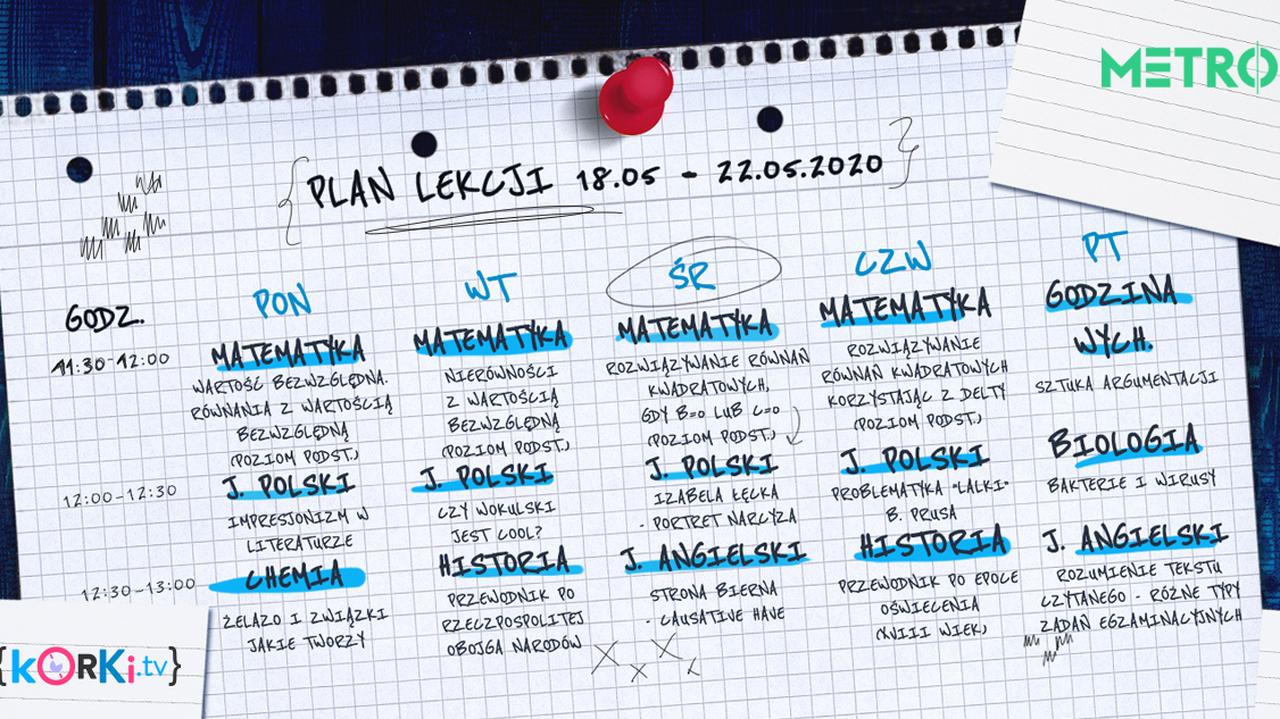 METRO
PLAN LEKCJI 18.05 - 22.05.2020
GODZ.
PON
WT
ŚR
CZW
PT
11:30-12:00
MATEMATYKA
WARTOŚĆ BEZWZGLĘDNA.
RÓWNANIA Z WARTOŚCIĄ
BEZWZGLĘDNĄ
(POZIOM PODST.)
MATEMATYKA
NIERÓWNOŚCI
Z WARTOŚCIĄ
BEZWZGLĘDNĄ
(POZIOM PODST.)
MATEMATYKA
ROZWIĄZYWANIE RÓWNAŃ
KWADRATOWYCH,
GDY B=0 LUB C=0
(POZIOM PODST.)
MATEMATYKA
ROZWIĄZYWANIE
RÓWNAŃ KWADRATOWYCH
KORZYSTAJĄC Z DELTY
(POZIOM PODST.)
GODZINA
WYCH.
SZTUKA ARGUMENTACJI
12:00-12:30
J. POLSKI
IMPRESJONIZM W
LITERATURZE
J. POLSKI
CZY WOKULSKI
JEST COOL?
J. POLSKI
IZABELA ŁĘCKA
- PORTRET NARCYZA
J. POLSKI
PROBLEMATYKA "LALKI"
B. PRUSA
BIOLOGIA
BAKTERIE I WIRUSY
12:30-13:00
CHEMIA
ŻELAZO I ZWIĄZKI
JAKIE TWORZY
HISTORIA
PRZEWODNIK PO
RZECZPOSPOLITEJ
OBOJGA NARODÓW
J. ANGIELSKI
STRONA BIERNA
- CAUSATIVE HAVE
HISTORIA
PRZEWODNIK PO EPOCE
OŚWIECENIA
(XVIII WIEK)
J. ANGIELSKI
ROZUMIENIE TEKSTU
CZYTANEGO - RÓŻNE TYPY
ZADAŃ EGZAMINACYJNYCH
{kORKi.tv}